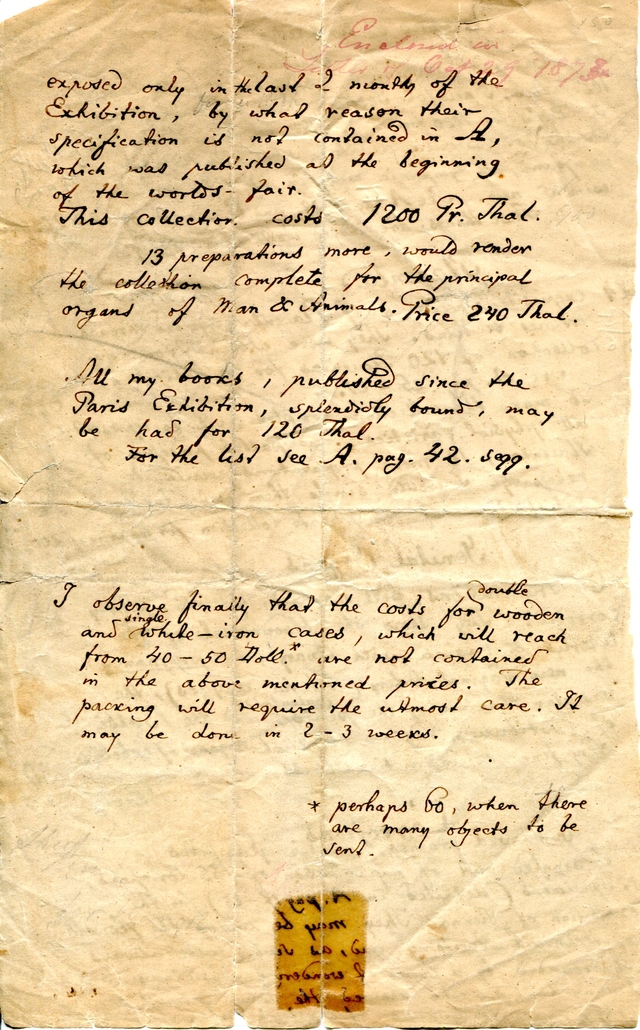 Enclosed in
Oct 29 1873
exposed only in the last 2 months of the
Exhibition, by what reason their
specification is not contained in A,
which was published at the beginning
of the worlds-fair.
This collection costs 1200 Pr. Thal.
13 preparations more, would render
the collection complete for the principal
organs of Man & Animals. Price 240 Thal.
All my books, published since the
Paris Exhibition, splendidly bound, may
be had for 120 Thal.
For the list see A. pag. 42. sqq.
I observe finally that the costs for double wooden
and single white-iron cases, which will reach
from 40-50 Doll.* are not contained
in the above mentioned prizes. The
packing will require the utmost care. It
may be done in 2-3 weeks.
* perhaps 60, when there
are many objects to be
sent.
may be